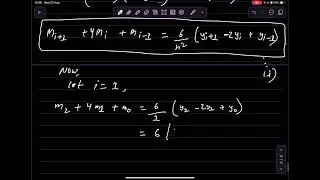 m_{i+1} + 4m_i + m_{i-1} = \frac{6}{h^2} (y_{i+1} - 2y_i + y_{i-1})
Now,
let i = 1,
m_2 + 4m_1 + m_0 = \frac{6}{1} (y_2 - 2y_1 + y_0)
= 6 (